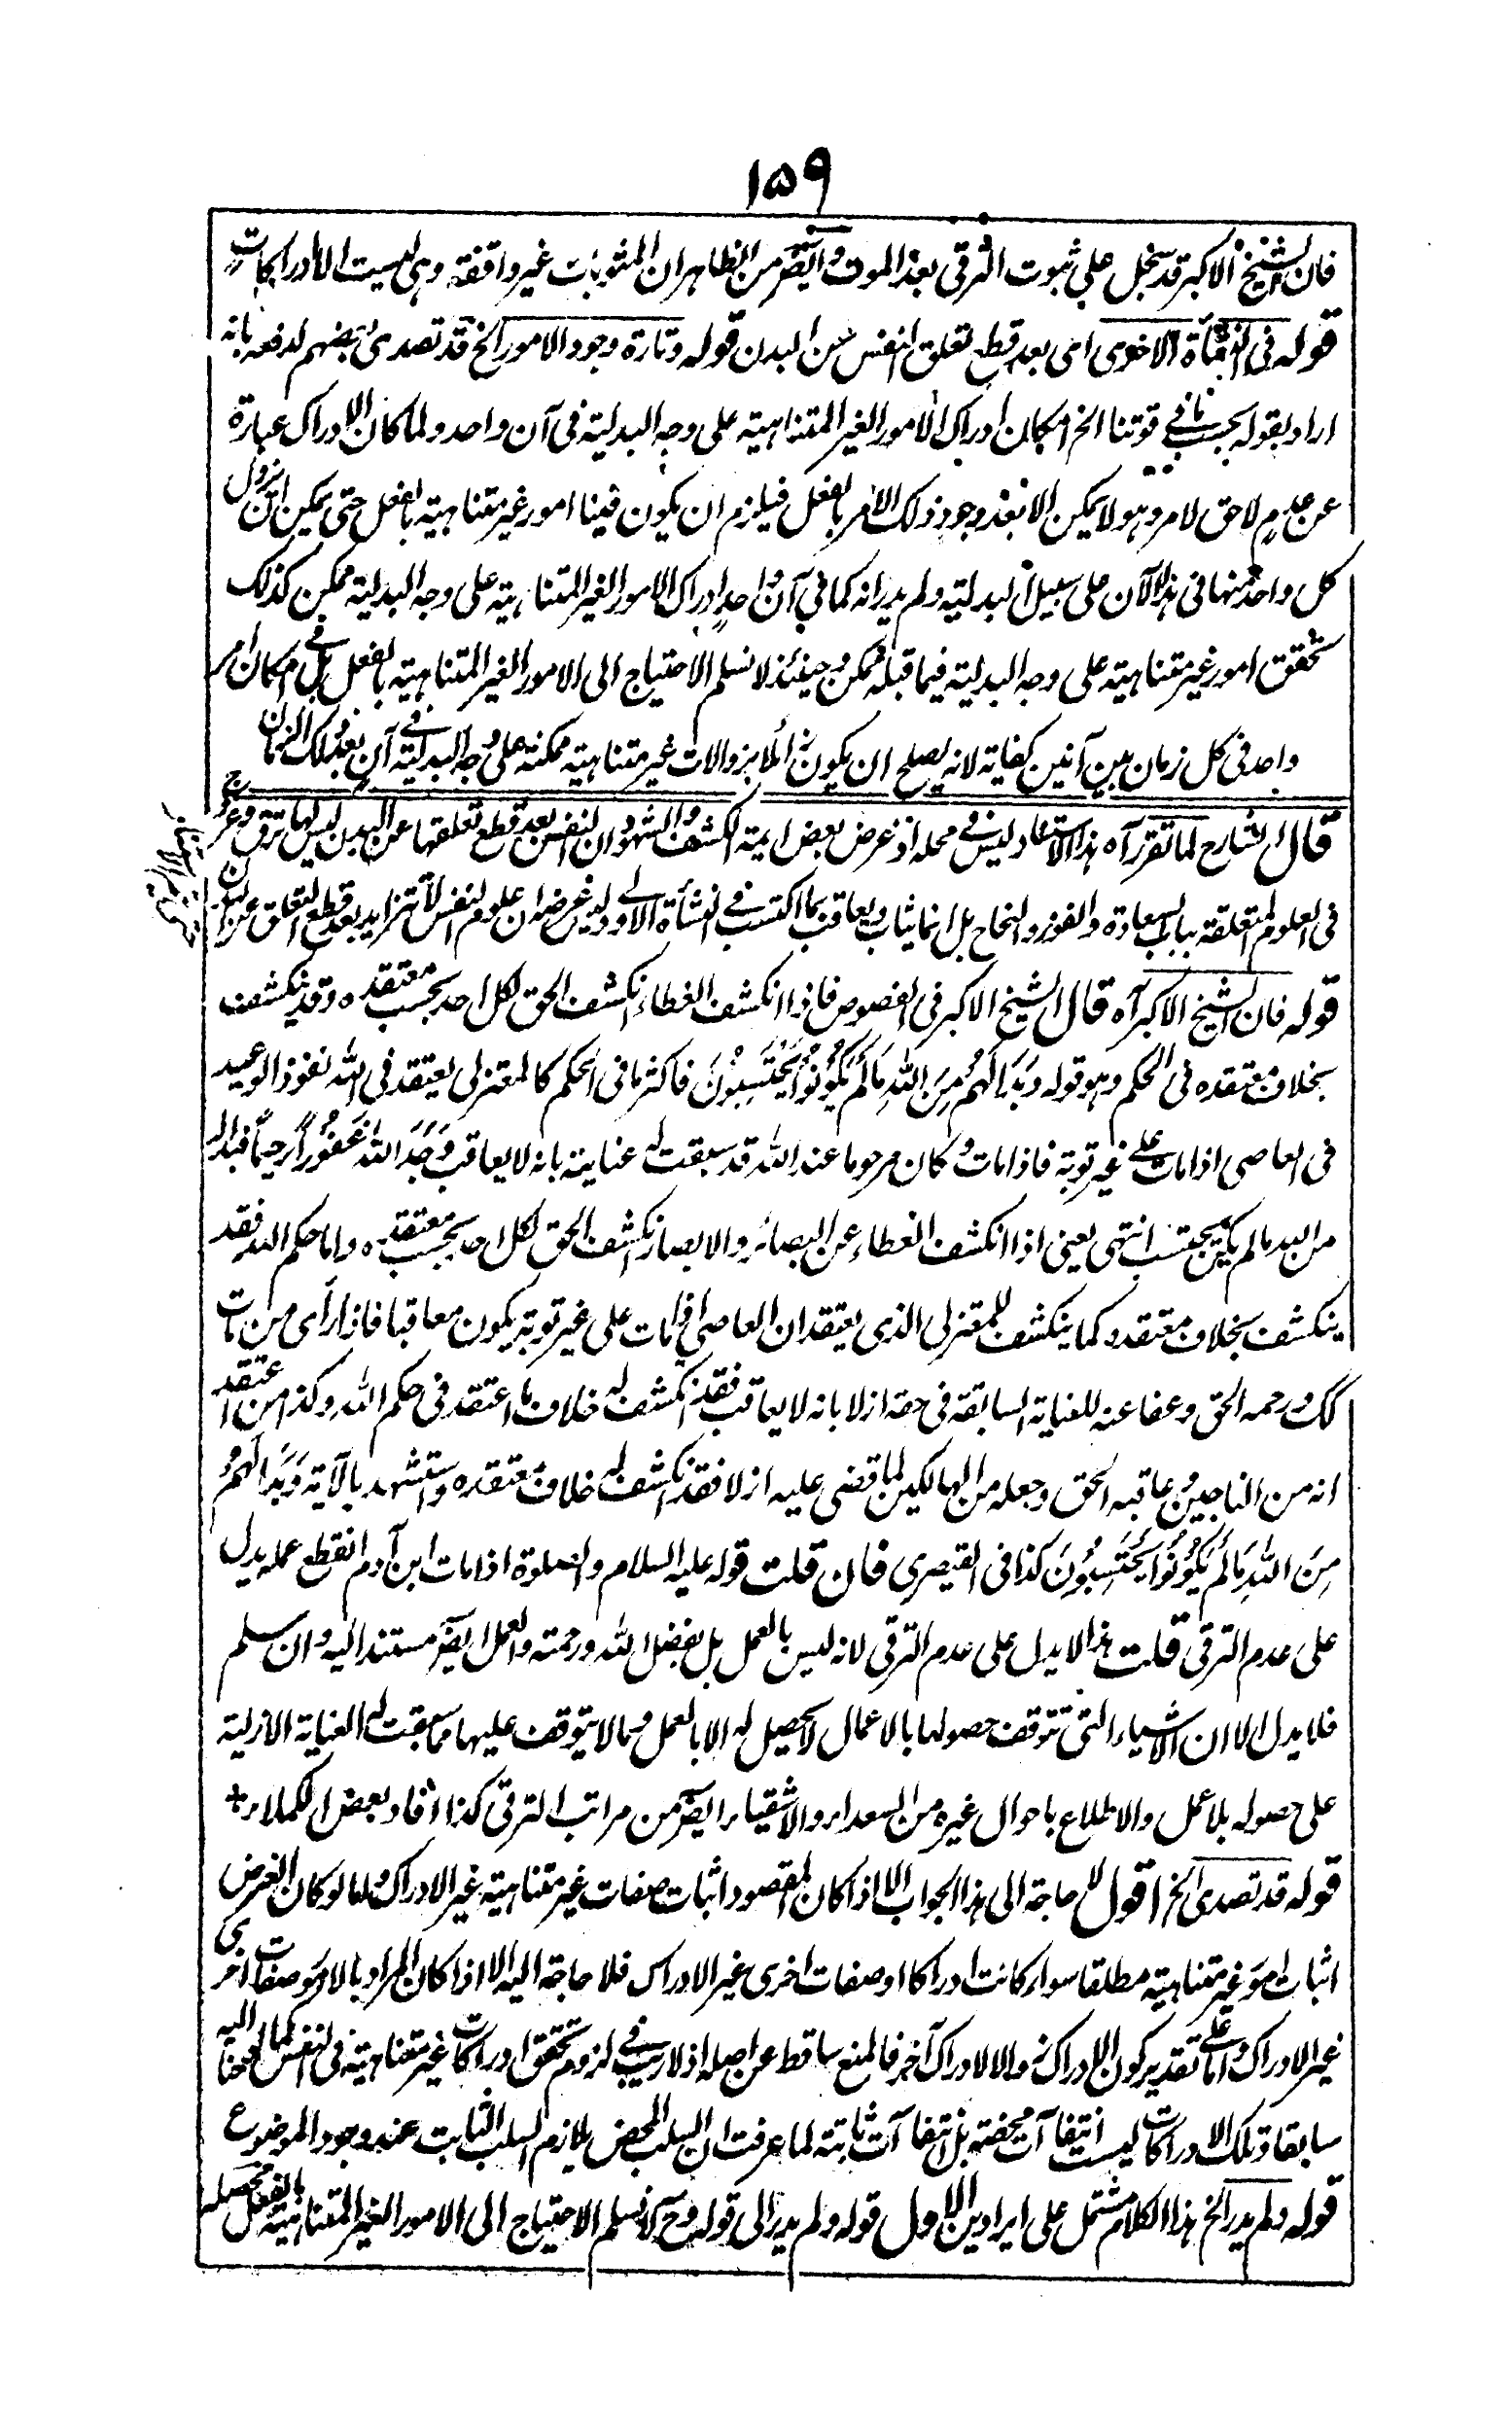 ١٥٩
فان الشيخ الاكبر قد سجل على ثبوت الترقى بعد الموت وايضر من الظاهر ان المثوبات غير واقفة وهى ليست الا ادراكات
قوله فى النشأة الاخرى اى بعد قطع تعلق النفس عن البدن قوله وتارة وجود الامور الخ قد تصدى بعضهم لدفعه بانه
اراد بقوله بحسب ما فى قوتنا الخ امكان ادراك الامور الغير المتناهية على وجه البدلية فى آن واحد ولما كان الادراك عبارة
عن عدم لاحق لامر وهو لا يمكن الا بعد وجود ذلك الامر بالفعل فيلزم ان يكون فينا امور غير متناهية بالفعل حتى يمكن ان يزول
كل واحد منها فى هذا الآن على سبيل البدلية ولم يدر انه كما فى آن واحد ادراك الامور الغير المتناهية على وجه البدلية ممكن كذلك
تحقق امور غير متناهية على وجه البدلية فيما قبله ممكن وحينئذ لا نسلم الاحتياج الى الامور الغير المتناهية بالفعل بل فى امكان امر
واحد فى كل زمان بين آنين كفاية لانه يصلح ان يكون زائلا بزوالات غير متناهية ممكنة على وجه البدلية فى آن بعد ذلك الزمان
قال الشارح لما تقرر آه هذا الاستبعاد ليس فى محله اذ غرض بعض ايمة الكشف والشهود ان النفس بعد قطع تعلقها عن البدن ليس لها ترق وعروج
فى العلوم المتعلقة بباب السعادة والفوز والنجاح بل انما يثاب ويعاقب بما اكتسب فى النشأة الاولى وليس غرضه ان علوم النفس لا تتزايد بعد قطع التعلق عن البدن
قوله فان الشيخ الاكبر آه قال الشيخ الاكبر فى الفصوص فاذا انكشف الغطاء انكشف الحق لكل احد بحسب معتقده وقد ينكشف
بخلاف معتقده فى الحكم وهو قوله وَبَدَا لَهُمْ مِنَ اللّٰهِ مَا لَمْ يَكُوْنُوْا يَحْتَسِبُوْنَ فاكثرها فى الحكم كالمعتزلى يعتقد فى الله نفوذ الوعيد
فى العاصى اذا مات على غير توبة فاذا مات وكان مرحوما عند الله قد سبقت له عناية بانه لا يعاقب وَجَدَ اللّٰهَ غَفُوْرًا رَحِيْمًا فبدا له
من الله ما لم يكن يحتسب انتهى يعنى اذا انكشف الغطاء عن البصائر والابصار انكشف الحق لكل احد بحسب معتقده واما حكم الله فقد
ينكشف بخلاف معتقده كما ينكشف للمعتزلى الذى يعتقد ان العاصى اذا مات على غير توبة يكون معاقبا فاذا رأى من مات
كك ورحمه الحق وعفا عنه للعناية السابقة فى حقه ازلا بانه لا يعاقب فقد انكشف له خلاف ما اعتقد فى حكم الله وكذا من اعتقد
انه من الناجين وعاقبه الحق وجعله من الهالكين لما قضى عليه ازلا فقد انكشف له خلاف معتقده واستشهد بالآية وَبَدَا لَهُمْ
مِنَ اللّٰهِ مَا لَمْ يَكُوْنُوْا يَحْتَسِبُوْنَ كذا فى القيصرى فان قلت قوله عليه السلام والصلوة اذا مات ابن آدم انقطع عمله يدل
على عدم الترقى قلت هذا لا يدل على عدم الترقى لانه ليس بالعمل بل بفضل الله ورحمته والعمل ايضر مستند اليه وان سلم
فلا يدل الا ان الاشياء التى تتوقف حصولها بالاعمال لا تحصيل له الا بالعمل وما لا يتوقف عليها مما سبقت له العناية الازلية
على حصوله بلا عمل والاطلاع باحوال غيره من السعداء والاشقياء ايضر من مراتب الترقى كذا افاد بعض الكملاء +
قوله قد تصدى الخ اقول لا حاجة الى هذا الجواب الا اذا كان المقصود اثبات صفات غير متناهية غير الادراك واما لو كان الغرض
اثبات امور غير متناهية مطلقا سواء كانت ادراكا او صفات اخرى غير الادراك فلا حاجة اليه الا اذا كان المراد بالامور صفات اخرى
غير الادراك واما على تقدير كون الادراك زوالا لادراك آخر فالمنع ساقط عن اصله اذ لا ريب فى لزوم تحقق ادراكات غير متناهية فى النفس كما لوحنا اليه
سابقا وتلك الادراكات ليست انتفاآت محضة بل انتفاآت ثابتة لما عرفت ان السلب المحض يلازم السلب الثابت عند وجود الموضوع
قوله ولم يدر الخ هذا الكلام مشتمل على ايرادين الاول قوله ولم يدر الى قوله وح لا نسلم الاحتياج الى الامور الغير المتناهية بالفعل محصله